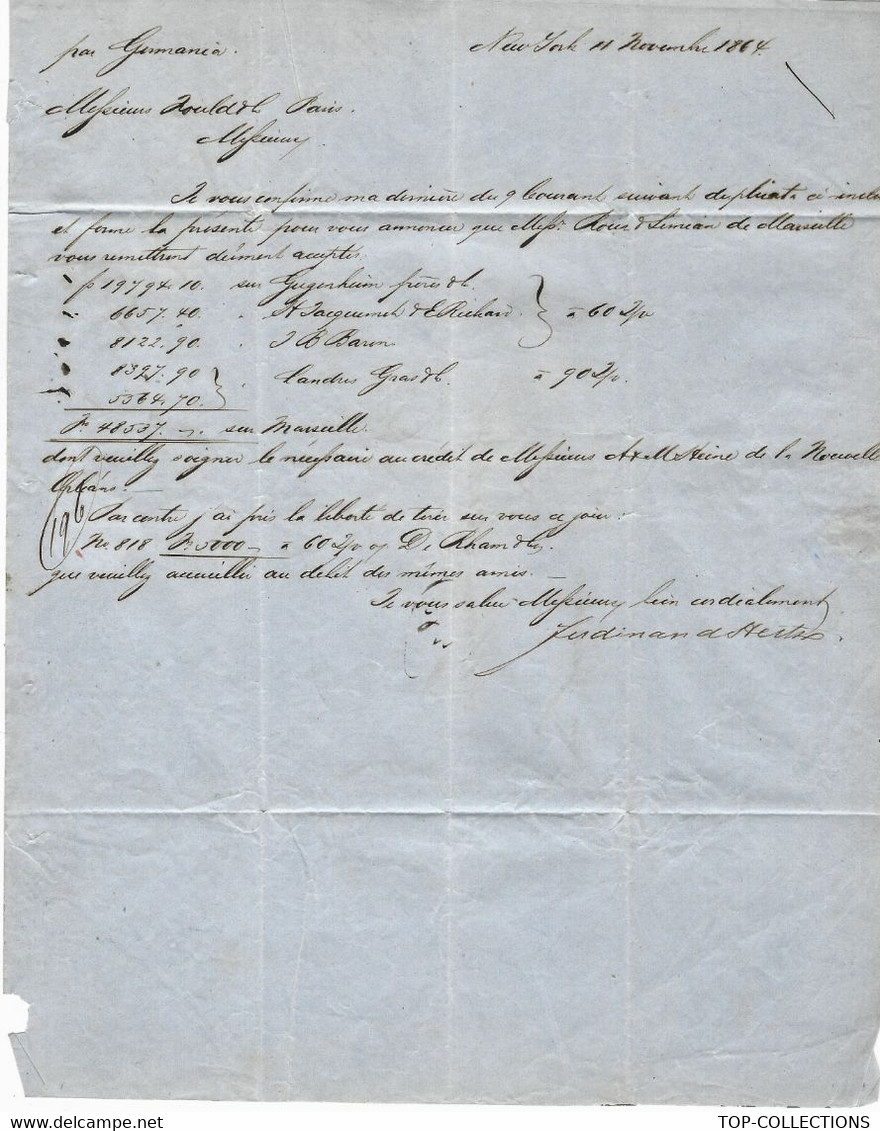 par Germania. New York 11 Novembre 1864.
Messieurs Fould & Co Paris.
Messieurs,
Je vous confirme ma dernière du 9 Courant suivant duplicata ci-inclus
et forme la présente pour vous annoncer que Messrs Roux & Simian de Marseille
vous remettront dûment acceptés.
fs 19794.10. sur Gugenheim frères & Co.
6657.40. " & E Richard. à 60 J/v
8122.90. " J B Baron
8397.90 " Landres Gras & Co. à 90 J/v.
5564.70.
Fs 48537. -. sur Marseille.
dont veuillez soigner le nécessaire au crédit de Messieurs A & M Heine de la Nouvelle
Orléans. -
Par contre j'ai pris la liberté de tirer sur vous ce jour:
196
No 818 Fs 5000 - à 60 J/v o/ De Rham & Co.
que veuillez accueillir au debit des mêmes amis. -
Je vous salue Messieurs bien cordialement
Ferdinand Hertz.
TOP-COLLECTIONS
www.delcampe.net